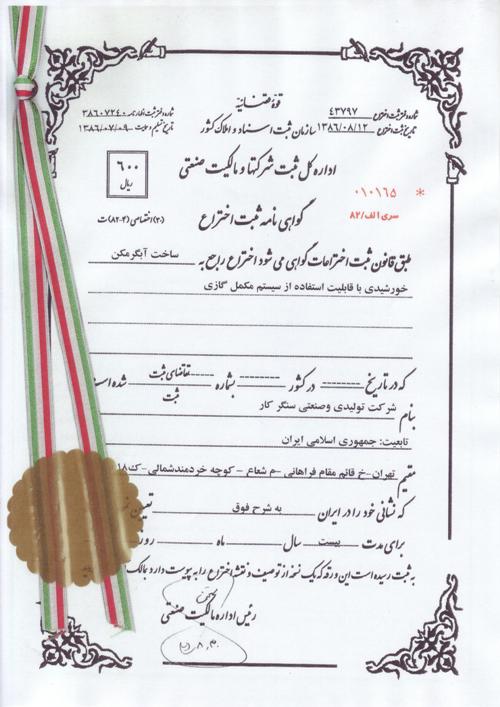 قوهٔ قضائیه
شماره ثبت اختراع ۴۳۷۹۷
شماره دفتر ثبت اظهارنامه ۳۸۶۰۷۲۴۰
تاریخ ثبت اختراع ۱۳۸۶/۰۸/۱۲
سازمان ثبت اسناد و املاک کشور
تاریخ تسلیم ۱۳۸۶/۰۷/۰۹
اداره کل ثبت شرکتها و مالکیت صنعتی
۶۰۰
ریال
* ۰۱۰۱۶۵
سری الف/۸۲
گواهی نامه ثبت اختراع
(۲۰) اختصاصی (۴-۸۲) ت
طبق قانون ثبت اختراعات گواهی می شود اختراع راجع به ساخت آبگرمکن
خورشیدی با قابلیت استفاده از سیستم مکمل گازی
که در تاریخ -------- در کشور -------- بشماره -------- تقاضای ثبت شده است
ثبت
بنام شرکت تولیدی وصنعتی سنگر کار
تابعیت: جمهوری اسلامی ایران
مقیم تهران-خ قائم مقام فراهانی -م شعاع - کوچه خردمندشمالی-ک۱۸
که نشانی خود را در ایران به شرح فوق تعیین
برای مدت بیست سال ماه روز
به ثبت رسیده است این ورقه که یک نسخه از توصیف و نقشه اختراع را به پیوست دارد بمالک
رئیس اداره مالکیت صنعتی